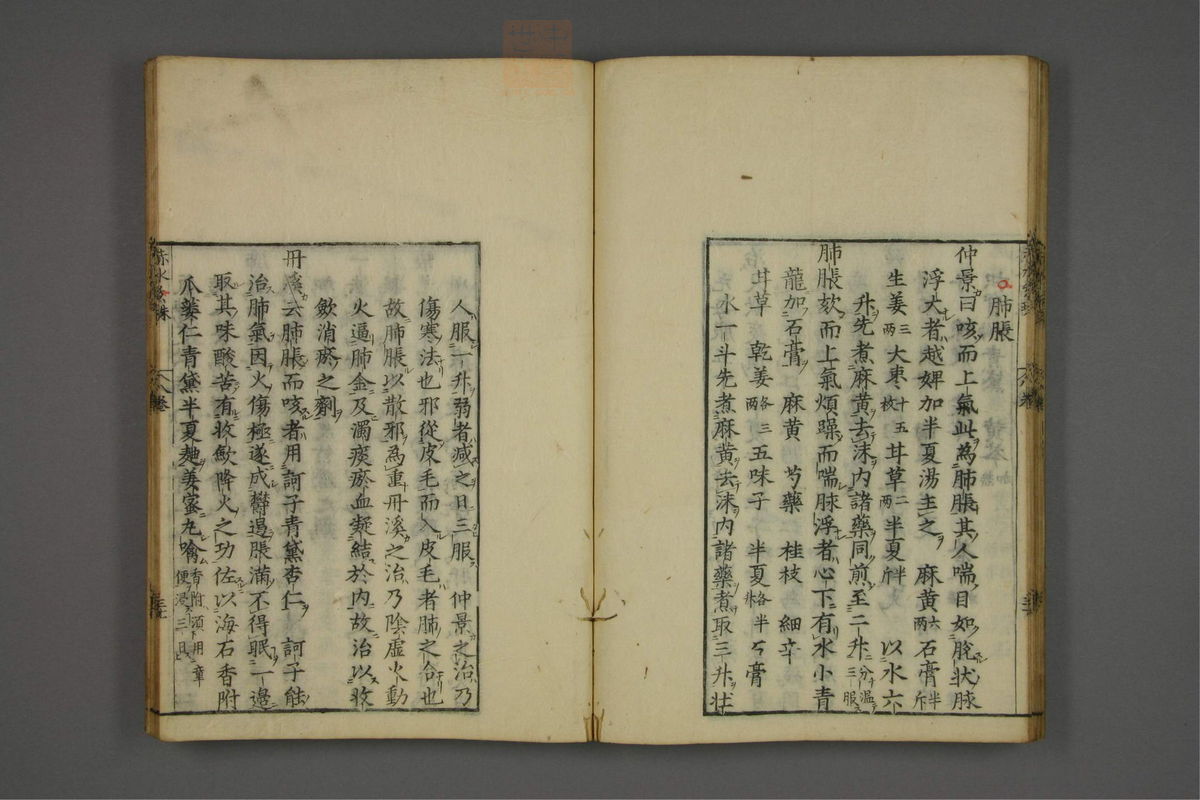 肺脹
仲景曰咳而上氣此為肺脹其人喘目如脫狀脉
浮大者越婢加半夏湯主之 麻黃六兩石膏半斤
生姜三兩大棗十五枚甘草二兩半夏半斤 以水六
升先煮麻黃去沫内諸藥同煎至二升分溫三服
肺脹欬而上氣煩躁而喘脉浮者心下有水小青
龍加石膏 麻黃 芍藥 桂枝 細辛
甘草 乾姜各三兩五味子 半夏各半升石膏
水一斗先煮麻黃去沫内諸藥煮取三升壮
人服一升弱者减之日三服 仲景之治乃
傷寒法也邪從皮毛而入皮毛者肺之合也
故肺脹以散邪為重丹溪之治乃陰虛火動
火逼肺金及濁痰瘀血凝結於内故治以收
歛消瘀之劑
丹溪云肺脹而咳者用訶子青黛杏仁 訶子能
治肺氣因火傷極遂成欝遏脹滿不得眠一邊
取其味酸苦有收歛降火之功佐以海石香附
瓜蔞仁青黛半夏麯姜蜜丸噙香附須用童便浸三日
赤水玄珠
八卷